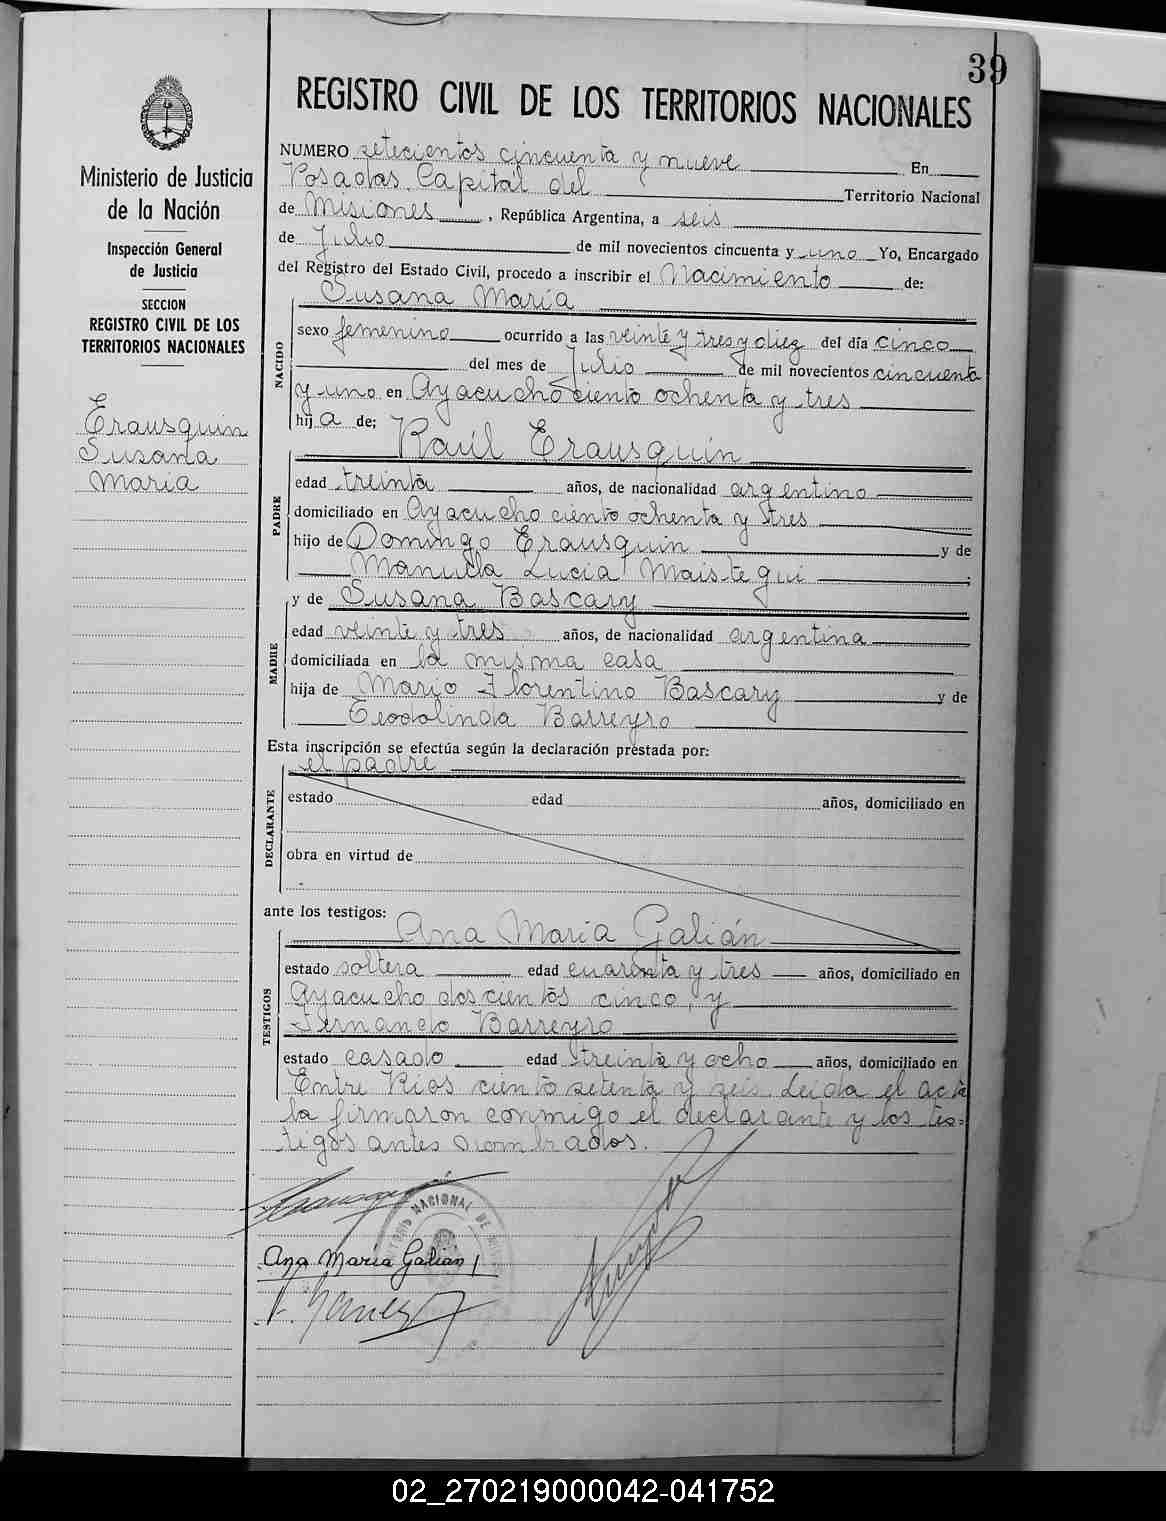 39
REGISTRO CIVIL DE LOS TERRITORIOS NACIONALES
Ministerio de Justicia
de la Nación
Inspección General
de Justicia
SECCION
REGISTRO CIVIL DE LOS
TERRITORIOS NACIONALES
Erausquin
Susana
María
NUMERO setecientos cincuenta y nueve En
Posadas, Capital del Territorio Nacional
de Misiones, República Argentina, a seis
de Julio de mil novecientos cincuenta y uno Yo, Encargado
del Registro del Estado Civil, procedo a inscribir el Nacimiento de:
NACIDO
Susana María
sexo femenino ocurrido a las veinte y tres y diez del día cinco
del mes de Julio de mil novecientos cincuenta
y uno en Ayacucho ciento ochenta y tres
hij a de;
PADRE
Raúl Erausquin
edad treinta años, de nacionalidad argentino
domiciliado en Ayacucho ciento ochenta y tres
hijo de Domingo Erausquin y de
Manuela Lucia Maistegui ;
y de Susana Bascary
MADRE
edad veinte y tres años, de nacionalidad argentina
domiciliada en la misma casa
hija de Mario Florentino Bascary y de
Teodolinda Barreyro
Esta inscripción se efectúa según la declaración prestada por:
el padre
DECLARANTE
estado edad años, domiciliado en
obra en virtud de
ante los testigos:
TESTIGOS
Ana María Galián
estado soltera edad cuarenta y tres años, domiciliado en
Ayacucho doscientos cinco, y
Fernando Barreyro
estado casado edad treinta y ocho años, domiciliado en
Entre Rios ciento setenta y seis. Leida el acta
la firmaron conmigo el declarante y los tes=
tigos antes nombrados.
NACIONAL DE
Ana María Galian
02_270219000042-041752